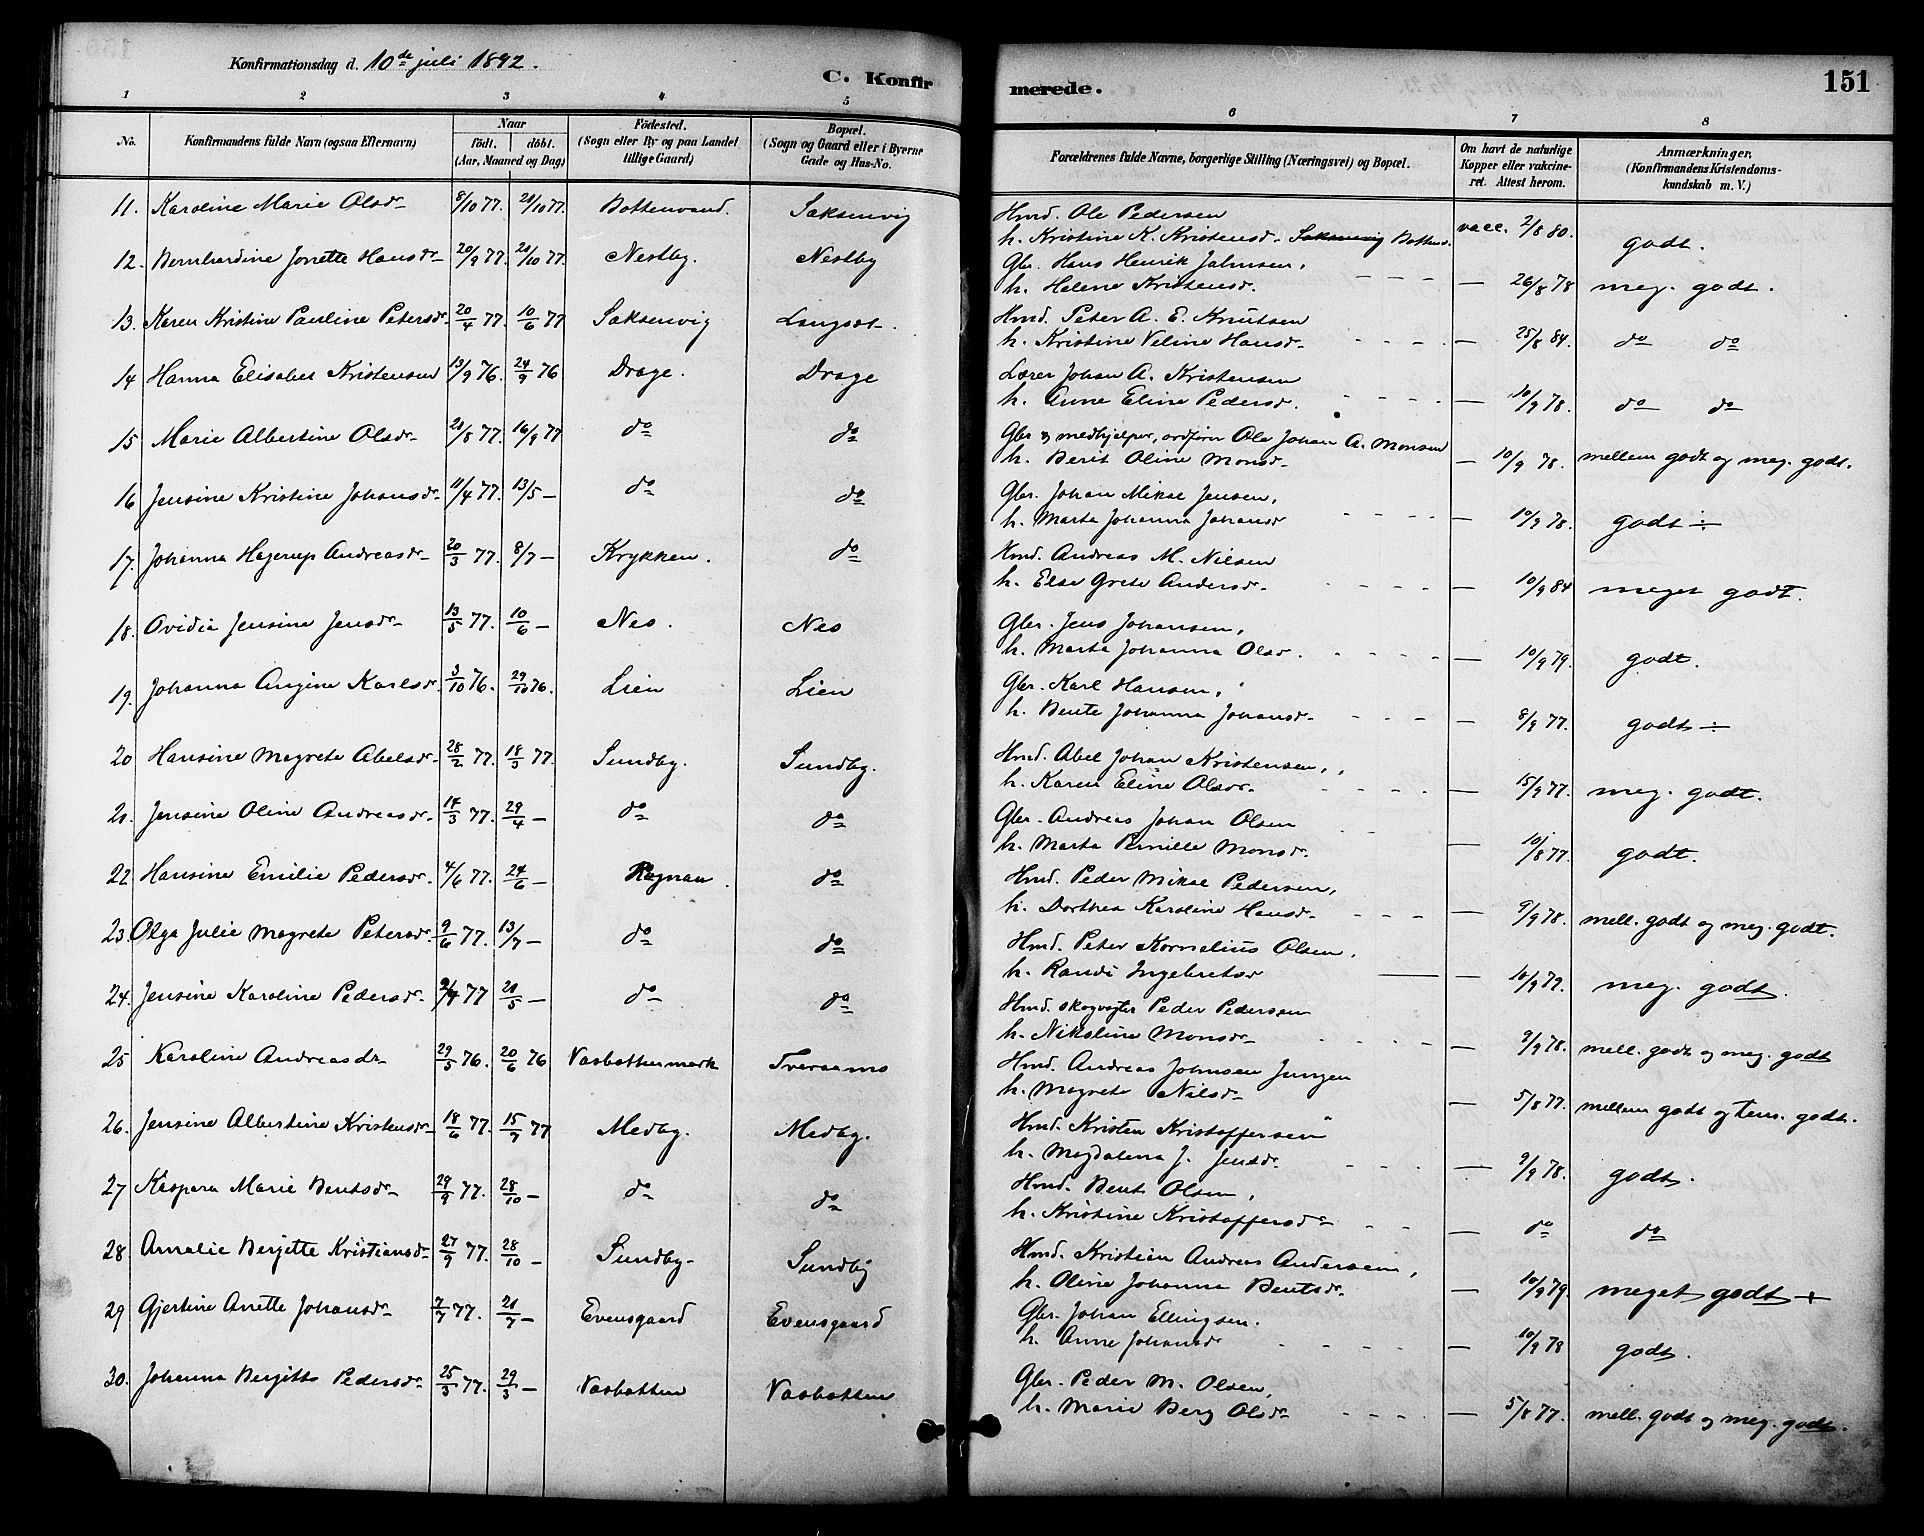 Konfirmationsdag d. 10de juli 1892.
C. Konfirmerede.
151
1 2 3 4 5 6 7 8
No. Konfirmandens fulde Navn (ogsaa Efternavn) Naar födt. döbt. (Aar, Maaned og Dag) Födested. (Sogn eller By og paa Landet tillige Gaard) Bopæl. (Sogn og Gaard eller i Byerne Gade og Hus-No. Forældrenes fulde Navne, borgerlige Stilling (Næringsvei) og Bopæl. Om havt de naturlige Kopper eller vakcineret. Attest herom. Anmærkninger. (Konfirmandens Kristendomskundskab m. V.)
11. Karoline Marie Olsdr 8/10 77. 21/10 77. Bottenvand. Saksenvig Hmd. Ole Pedersen
h. Kristine K. Kristensdr Saksenvig Bottenv. vacc. 2/8 80. godt.
12. Bernhardine Jonette Hansdr 20/9 77. 21/10 77. Nestby. Nestby Gbr. Hans Henrik Jahnsen,
h. Helene Kristensdr. — 26/8 78 meg. godt.
13. Karen Kristine Pauline Petersdr 20/4 77. 10/6 77 Saksenvig Langset. Hmd. Peter A. E. Knutsen
h. Kristine Veline Hansdr — 25/8 84. do do
14 Hanna Elisabet Kristensen 13/9 76. 24/9 76 Drage. Drage Lærer Johan A. Kristensen
h. Anne Eline Pedersdr. — 10/9 78. do do
15 Marie Albertine Olsdr 21/8 77. 16/9 77 do do Gbr. & medhjelper, ordfører Ole Johan A. Monsen
h. Berit Oline Monsdr — 10/9 78. mellem godt og meg. godt.
16 Jensine Kristine Johansdr 11/4 77. 13/5 — do do Gbr. Johan Mikal Jensen,
h. Marta Johanna Johansdr — 10/9 78. godt ÷
17. Johanna Hagerup Andreasdr 20/3 77. 8/7 — Krykken. do Hmd. Andreas M. Nilsen
h. Else Grete Andersdr. — 10/9 84 meget godt.
18. Ovidia Jensine Jensdr 13/5 77. 10/6 — Nes. Nes Gbr. Jens Johansen,
h. Marta Johanna Olsdr. — 10/9 79. godt.
19. Johanna Angine Karlsdr. 3/10 76. 29/10 76. Lien Lien Gbr. Karl Hansen,
h. Bente Johanna Johansdr — 8/9 77. godt ÷
20 Hansine Magrete Abelsdr 28/2 77. 18/3 77. Sundby. Sundby. Hmd. Abel Johan Kristensen,
h. Karen Eline Olsdr. — 15/9 77. meg. godt.
21. Jensine Oline Andreasdr. 14/3 77. 29/4 — do do Gbr. Andreas Johan Olsen
h. Marta Pernille Monsdr. — 10/8 77. godt.
22 Hansine Emilie Pedersdr. 4/6 77. 24/6 — Rognan. do Hmd. Peder Mikal Pedersen,
h. Dorthea Karoline Hansdr — 9/9 78. mell. godt og meg. godt.
23. Olga Julie Magrete Petersdr. 9/6 77. 13/7 — do do Hmd. Peter Kornelius Olsen,
h. Randi Ingebretsdr — 10/9 79. meg. godt.
24. Jensine Karoline Pedersdr. 2/4 77 21/5 — do do Hmd. skogvogter Peder Pedersen
h. Nikoline Monsdr — 9/9 78. mell. godt og meg. godt
25 Karoline Andreasdr 29/5 76. 20/6 76 Vasbottenmark Tveraamo Hmd. Andreas Johnsen Jungen
h. Magrete Nilsdr — 5/8 77. mellem godt og tem. godt.
26. Jensine Albertine Kristensdr 18/6 77. 15/7 77 Medby. Medby. Hmd. Kristen Kristoffersen
h. Magdalena J. Jensdr. — 9/9 78. godt.
27 Kaspara Marie Bentsdr 29/9 77. 28/10 — do do Hmd. Bent Olsen,
h. Kristine Kristoffersdr — do do
28 Amalie Bergitte Kristiansdr 27/9 77. 28/10 — Sundby. Sundby Hmd. Kristian Andreas Andersen,
h. Oline Johanna Bentsdr. — 10/9 79. meget godt +
29 Gjertine Anette Johansdr 7/7 77. 21/7 — Evensgaard Evensgaard Gbr. Johan Ellingsen.
h. Anne Johansdr — 10/9 78 godt.
30. Johanna Bergitte Pedersdr 25/3 77. 29/3 — Vasbotten Vasbotten Gbr. Peder M. Olsen,
h. Marie Berg Olsdr — 5/8 77. mell. godt og meg. godt.